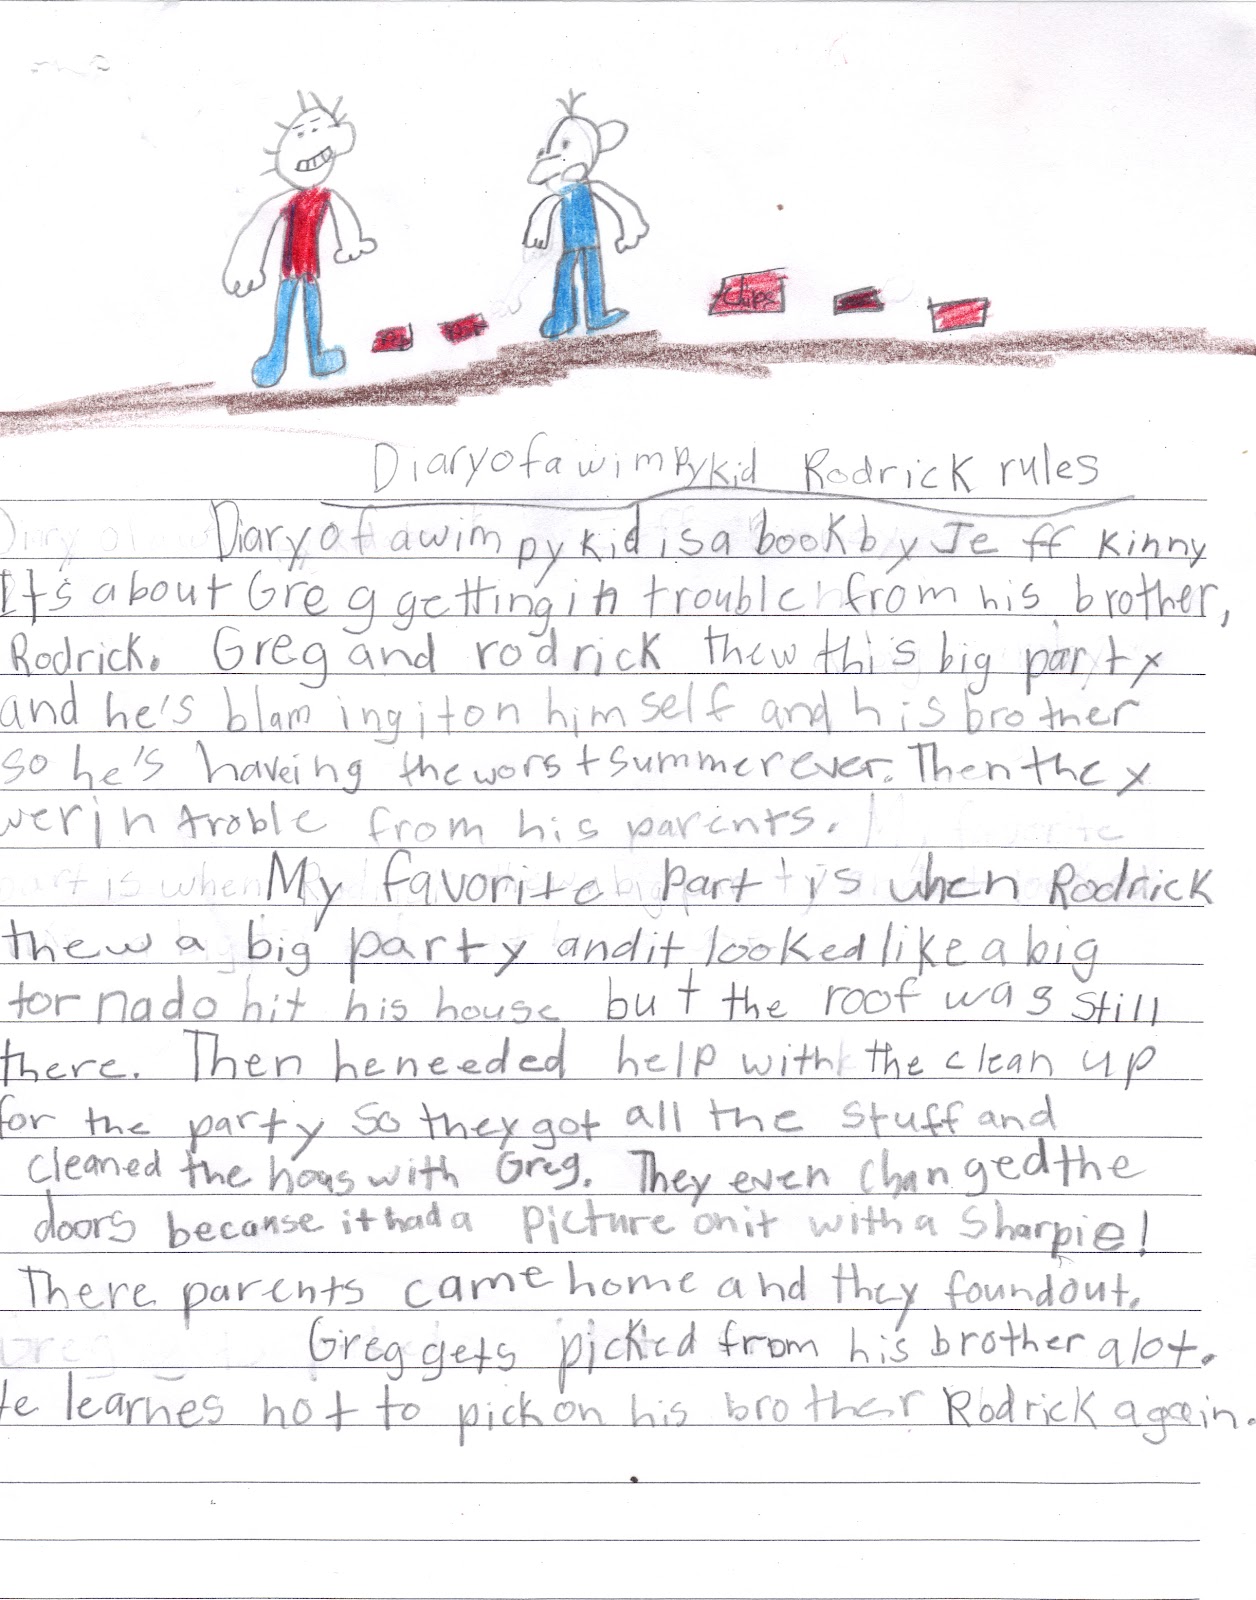 chips
Diary of a wimpy kid Rodrick rules
Diary of a wimpy kid is a book by Jeff Kinny
It's about Greg getting in trouble from his brother,
Rodrick. Greg and rodrick thew this big party
and he's blaming it on himself and his brother
so he's haveing the worst summer ever. Then they
wer in troble from his parents.
My favorite part is when Rodrick
thew a big party and it looked like a big
tornado hit his house but the roof was still
there. Then he needed help with the clean up
for the party so they got all the stuff and
cleaned the hous with Greg. They even changed the
doors because it had a picture on it with a Sharpie!
There parents came home and they found out.
Greg gets picked from his brother alot.
He learnes not to pick on his brother Rodrick again.